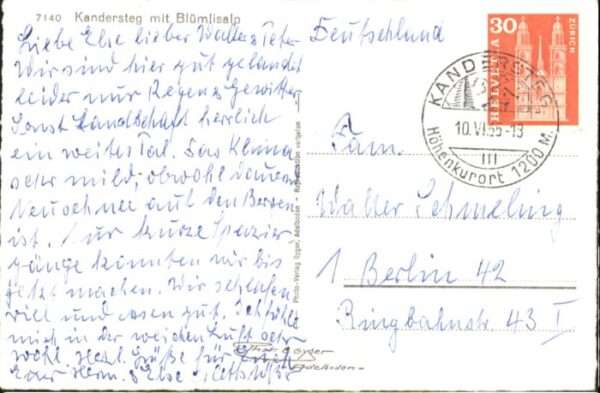 7140 Kandersteg mit Blümlisalp
Liebe Else lieber Walter u. Peter
Wir sind hier gut gelandet
leider nur Regen u. Gewitter
Sonst Landschaft herrlich
ein weites Tal. Das Klima
sehr mild, obwohl dauernd
Neuschnee auf den Bergen
ist. Nur kurze Spazier-
gänge konnten wir bis
jetzt machen. Wir schlafen
viel und essen gut. Ich fühle
mich in der weichen Luft sehr
wohl. Herzl. Grüße für
Euer Herm. Else
Photo-Verlag Gyger, Adelboden - Reproduktion verboten
Gyger
Adelboden
Deutschland
Fam.
Walter Schmeling
1 Berlin 42
Ringbahnstr. 43 I
30
HELVETIA
ZÜRICH
KANDERSTEG
10.VI.65-13
Höhenkurort 1200 M.